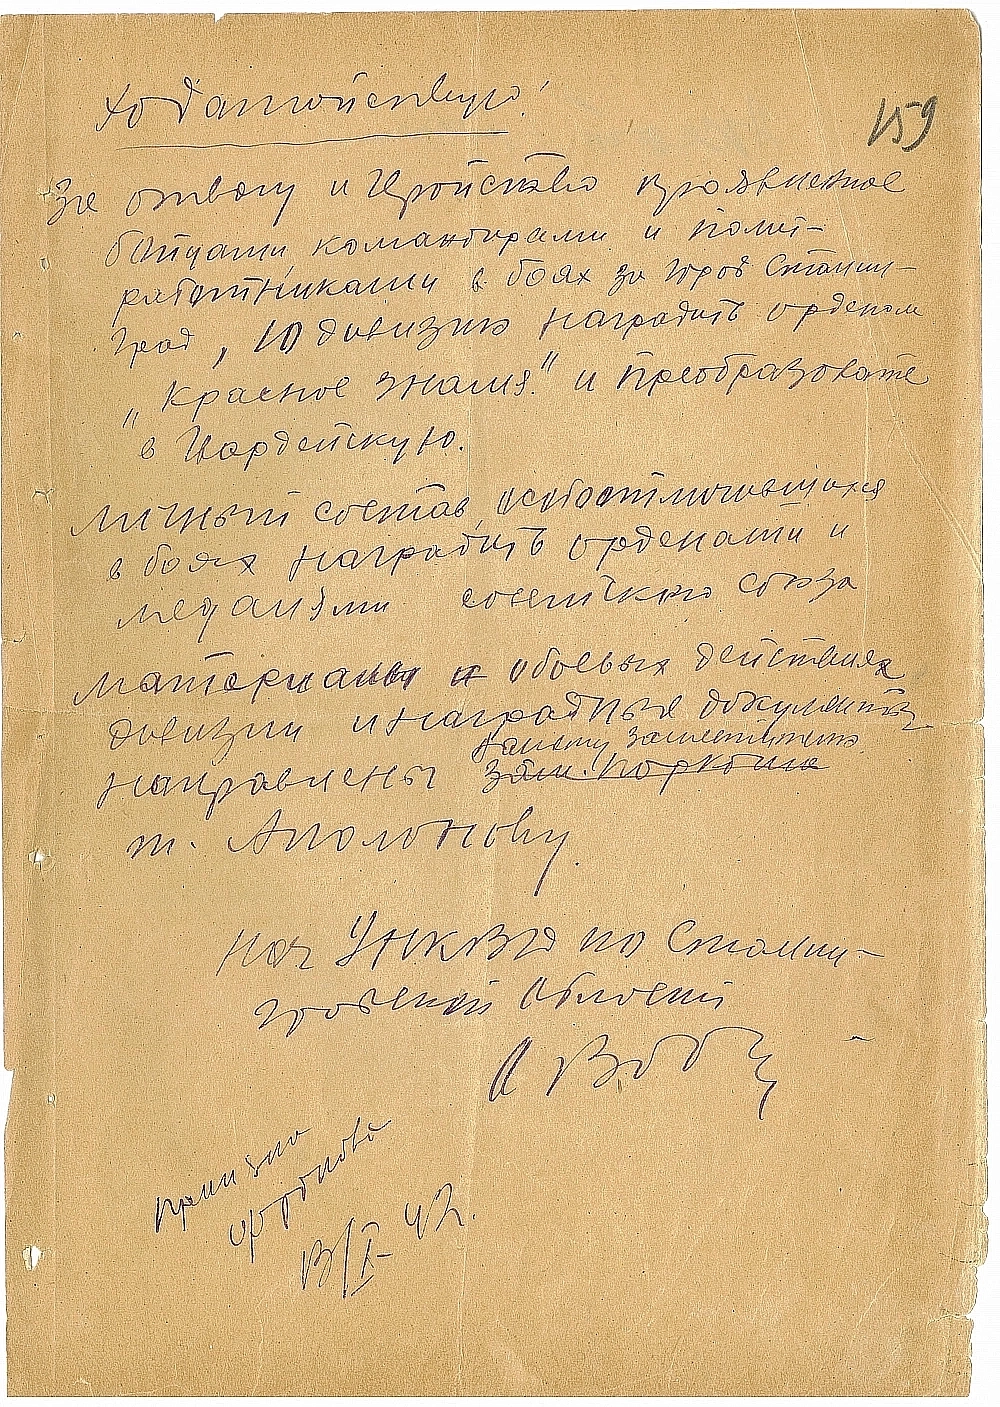 Ходатайствую!
159
За отвагу и Геройство проявленное
бойцами, командирами и полит-
работниками в боях за город Сталин-
град, 10 дивизию наградить орденом
„Красное знамя" и преобразовать
в Гвардейскую.
Личный состав, особоотличившихся
в боях наградить орденами и
медалями советского союза
Материалы о боевых действиях
дивизии и наградные документы
Вашему заместителю
направлены зам. Наркома
т. Аполонову.
Нач УНКВД по Сталин-
градской области
Нриз
13/X-42.